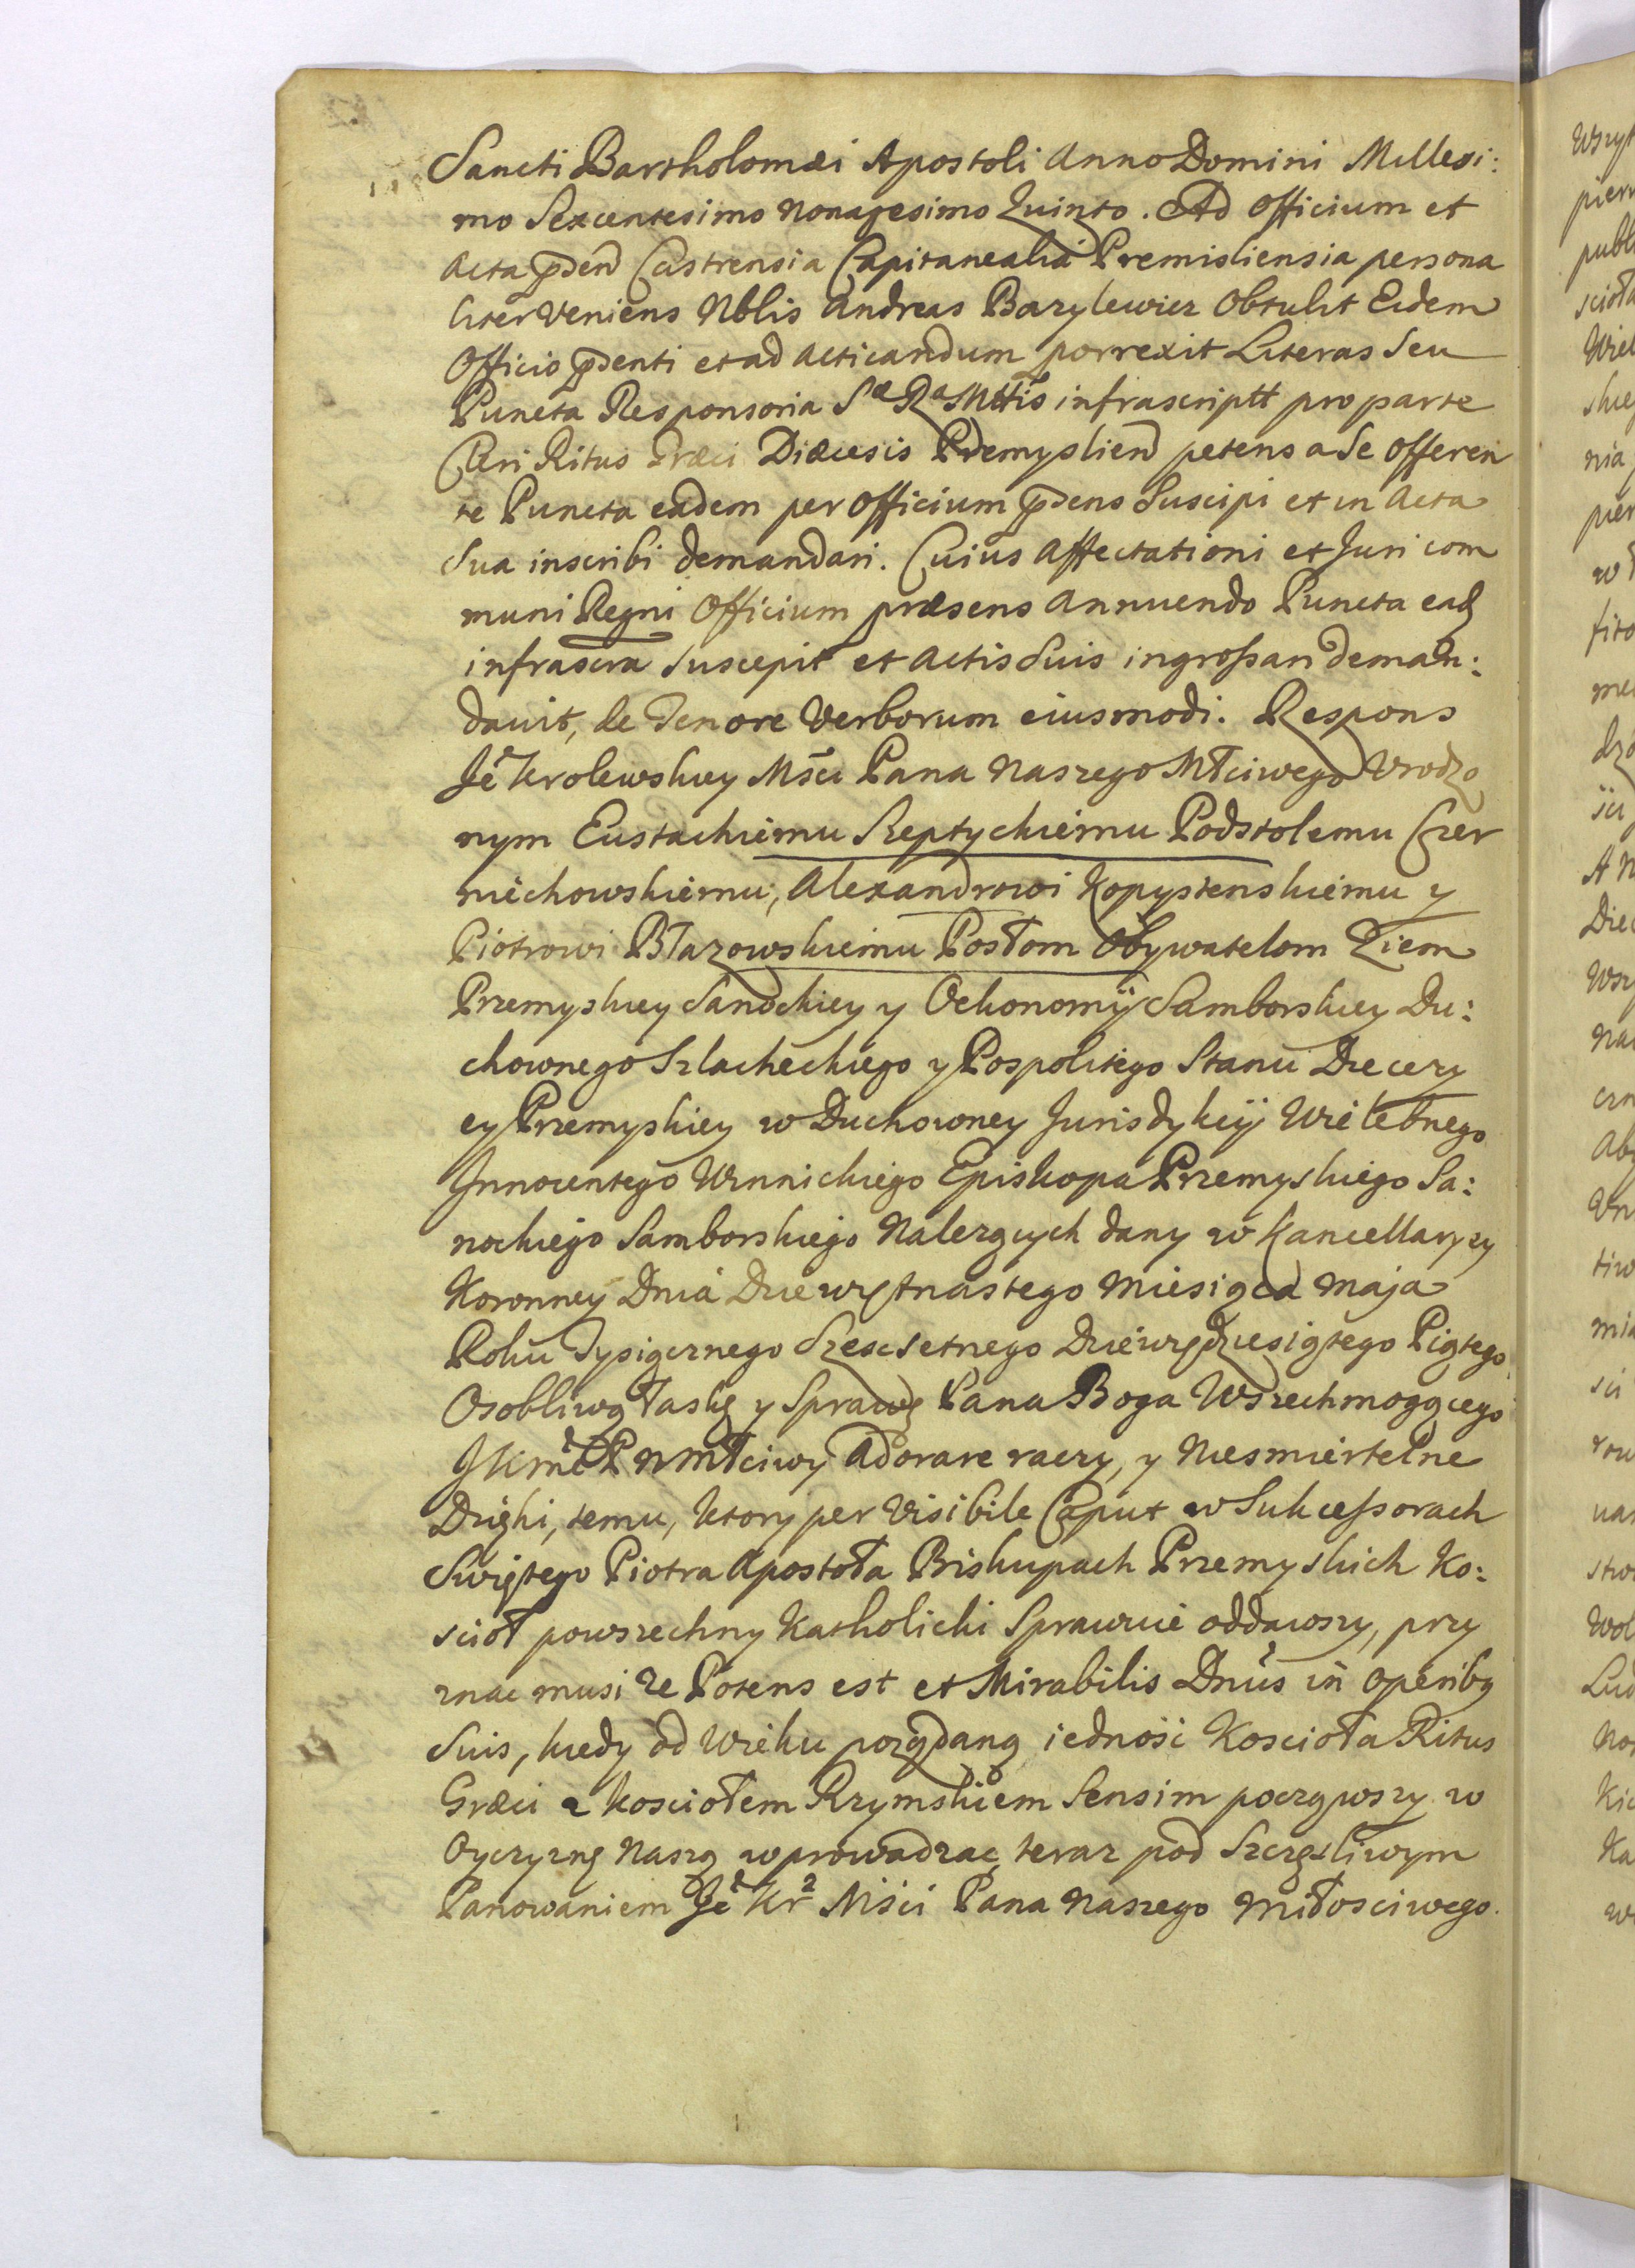 Sancti Bartholomæi Apostoli Anno Domini Millesi:
mo Sexcentesimo Nonagesimo Quinto. Ad Officium et
Acta p̃sen Castrensia Capitanealia Premisliensia persona
liter Veniens Nblis Andreas Barylewicz Obtulit Eidem
Officio p̃senti et ad acticandum porrexit Literas Seu
Puncta Responsoria Sæ Ræ Mttis infrascriptt pro parte
Cleri Ritus Græci Diæcesis Præmysliens petens a Se Offeren
te Puncta eadem per Officium p̃sens Suscipi et in Acta
Sua inscribi demandari. Cuius Affectationi et Juri com
muni Regni Officium præsens Annuendo Puncta ead
infrascra Suscepit et Actis Suis ingrossari deman:
davit, de Tenore Verborum eiusmodi. Respons
Je Krolewskiey Mści Pana Naszego Młciwego Vrodzo
nym Eustachiemu Szeptyckiemu Podstolemu Czer
niechowskiemu, Alexandrowi Kopystenskiemu y
Piotrowi Błazowskiemu Posłom Obywatelom Ziem
Przemyskiey Sanockiey y Oekonomij Samborskiey Du:
chownego Szlacheckiego y Pospolitego Stanu Diecezy
ey Przemyskiey w Duchowney Jurisdykcij Wielebnego
Innocentego Winnickiego Episkopa Przemyskiego Sa:
nockiego Samborskiego Nalezących dany w Kancellaryey
Koronney Dnia Dziewiętnastego Miesiąca Maja
Roku Tysiącznego Szescsetnego Dziewiędziesiątego Piątego
Osobliwą łaskę y Sprawę Pana Boga Wszechmogącego
JKmć P N Młciwy Adorare raczy, y Niesmiertelne
Dzięki, temu, ktory per Visibile Caput w Sukcessorach
Swiętego Piotra Apostoła Biskupach Przemyskich Ko:
scioł powszechny Katholicki Sprawuie oddawszy, przy
znac musi ze Potens est et Mirabilis Dnus in operibq
Suis, kiedy od Wieku poządaną iedność Koscioła Ritus
Græci z kosciołem Rzymskiem Sensim począwszy w
Oyczyznę Naszą wprowadzac, teraz pod Szczęsliwym
Panowaniem Je Kr Mści Pana Naszego Miłosciwego.